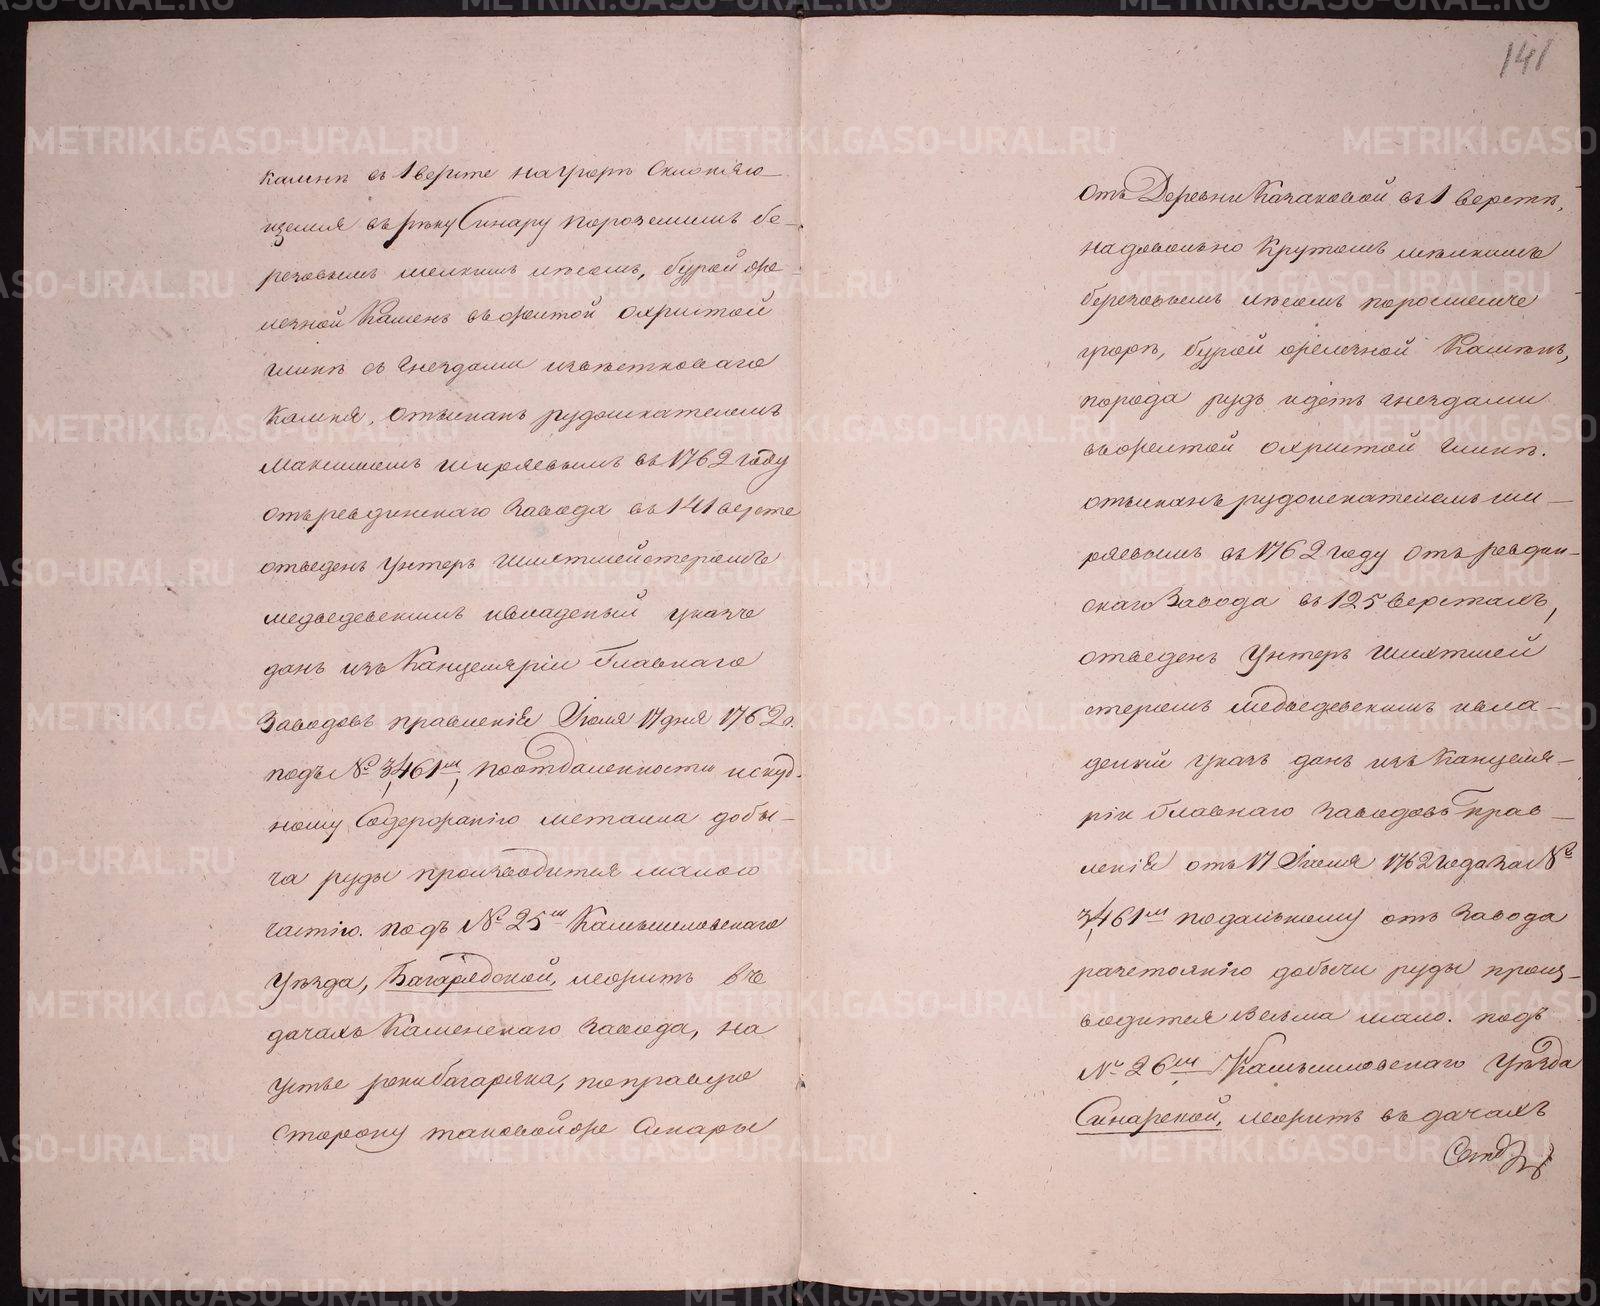 141
камнѣ въ 1 верстѣ на горѣ склоняю-
щемся въ рѣку Синару поросшимъ бе-
резовымъ мелкимъ лѣсомъ, бурой же-
лезной камень въ желтой охристой
глинѣ съ гнездами известковаго
камня, отысканъ рудоискателемъ
Максимомъ Ширяевымъ въ 1762 году
отъ ревдинскаго завода въ 141 версте
отведенъ Унтеръ Шихтмейстеромъ
медведевскимъ ивладеный указъ
данъ изъ Канцеляріи Главнаго
Заводовъ правленія Іюля 17 дня 1762 г.
подъ № 3,461м, поотдаленности искуд-
ному содержанію металла добы-
ча руды производится малою
частію. подъ № 25м Камышловскаго
Уѣзда, Багарядской, лежитъ въ
дачахъ Каменскаго завода, на
устье реки багаряка, поправую
сторону таковойже Синары
Отъ Деревни Казаковой въ 1 верстѣ,
надовольно крутомъ мѣлкимъ
березовымъ лѣсомъ поросшемъ
горѣ, бурой железной камень,
порода рудъ идетъ гнездами
въ желтой охристой глинѣ.
отысканъ рудоискателемъ ши-
ряевымъ въ 1762 году отъ ревдин-
скаго Завода въ 125 верстахъ,
отведенъ Унтеръ Шихтмей
стеромъ медведевскимъ ивла-
деный указъ данъ изъ Канцеля-
ріи Главнаго Заводовъ Прав-
ленія отъ 17 Іюля 1762 года за №
3,461м подальному отъ Завода
разстоянію добычи руды произ-
водится весьма мало. подъ
№ 26м Камышловскаго Уѣзда
Синарской, лежитъ въ дачахъ